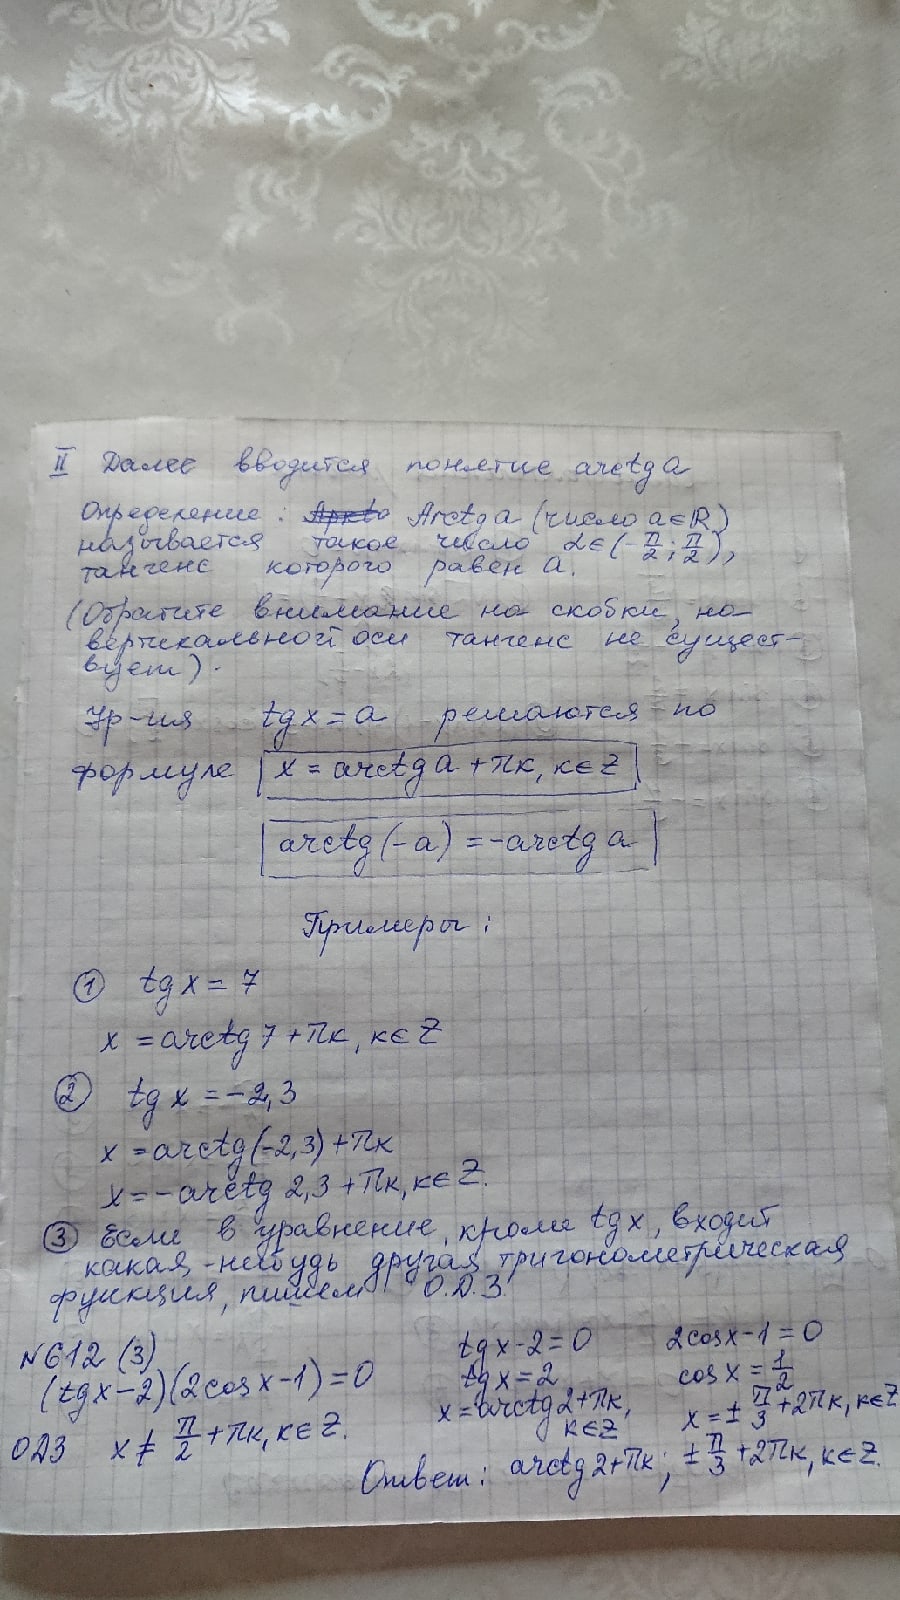 II Далее вводится понятие arctg a
Определение: Arctg a (число a∈R)
называется такое число α∈(-π/2; π/2),
тангенс которого равен a.
(Обратите внимание на скобки, на
вертикальной оси тангенс не сущест-
вует).
Ур-ия tg x = a решаются по
формуле x = arctg a + πк, к∈Z
arctg(-a) = -arctg a
Примеры:
① tg x = 7
x = arctg 7 + πк, к∈Z
② tg x = -2,3
x = arctg(-2,3) + πк
x = -arctg 2,3 + πк, к∈Z.
③ Если в уравнение, кроме tg x, входит
какая-нибудь другая тригонометрическая
функция, пишем О.Д.З.
№612 (3)
(tg x - 2)(2cos x - 1) = 0
ОДЗ x ≠ π/2 + πк, к∈Z.
tg x - 2 = 0
tg x = 2
x = arctg 2 + πк,
к∈Z
2cos x - 1 = 0
cos x = 1/2
x = ± π/3 + 2πк, к∈Z
Ответ: arctg 2 + πк; ± π/3 + 2πк, к∈Z.